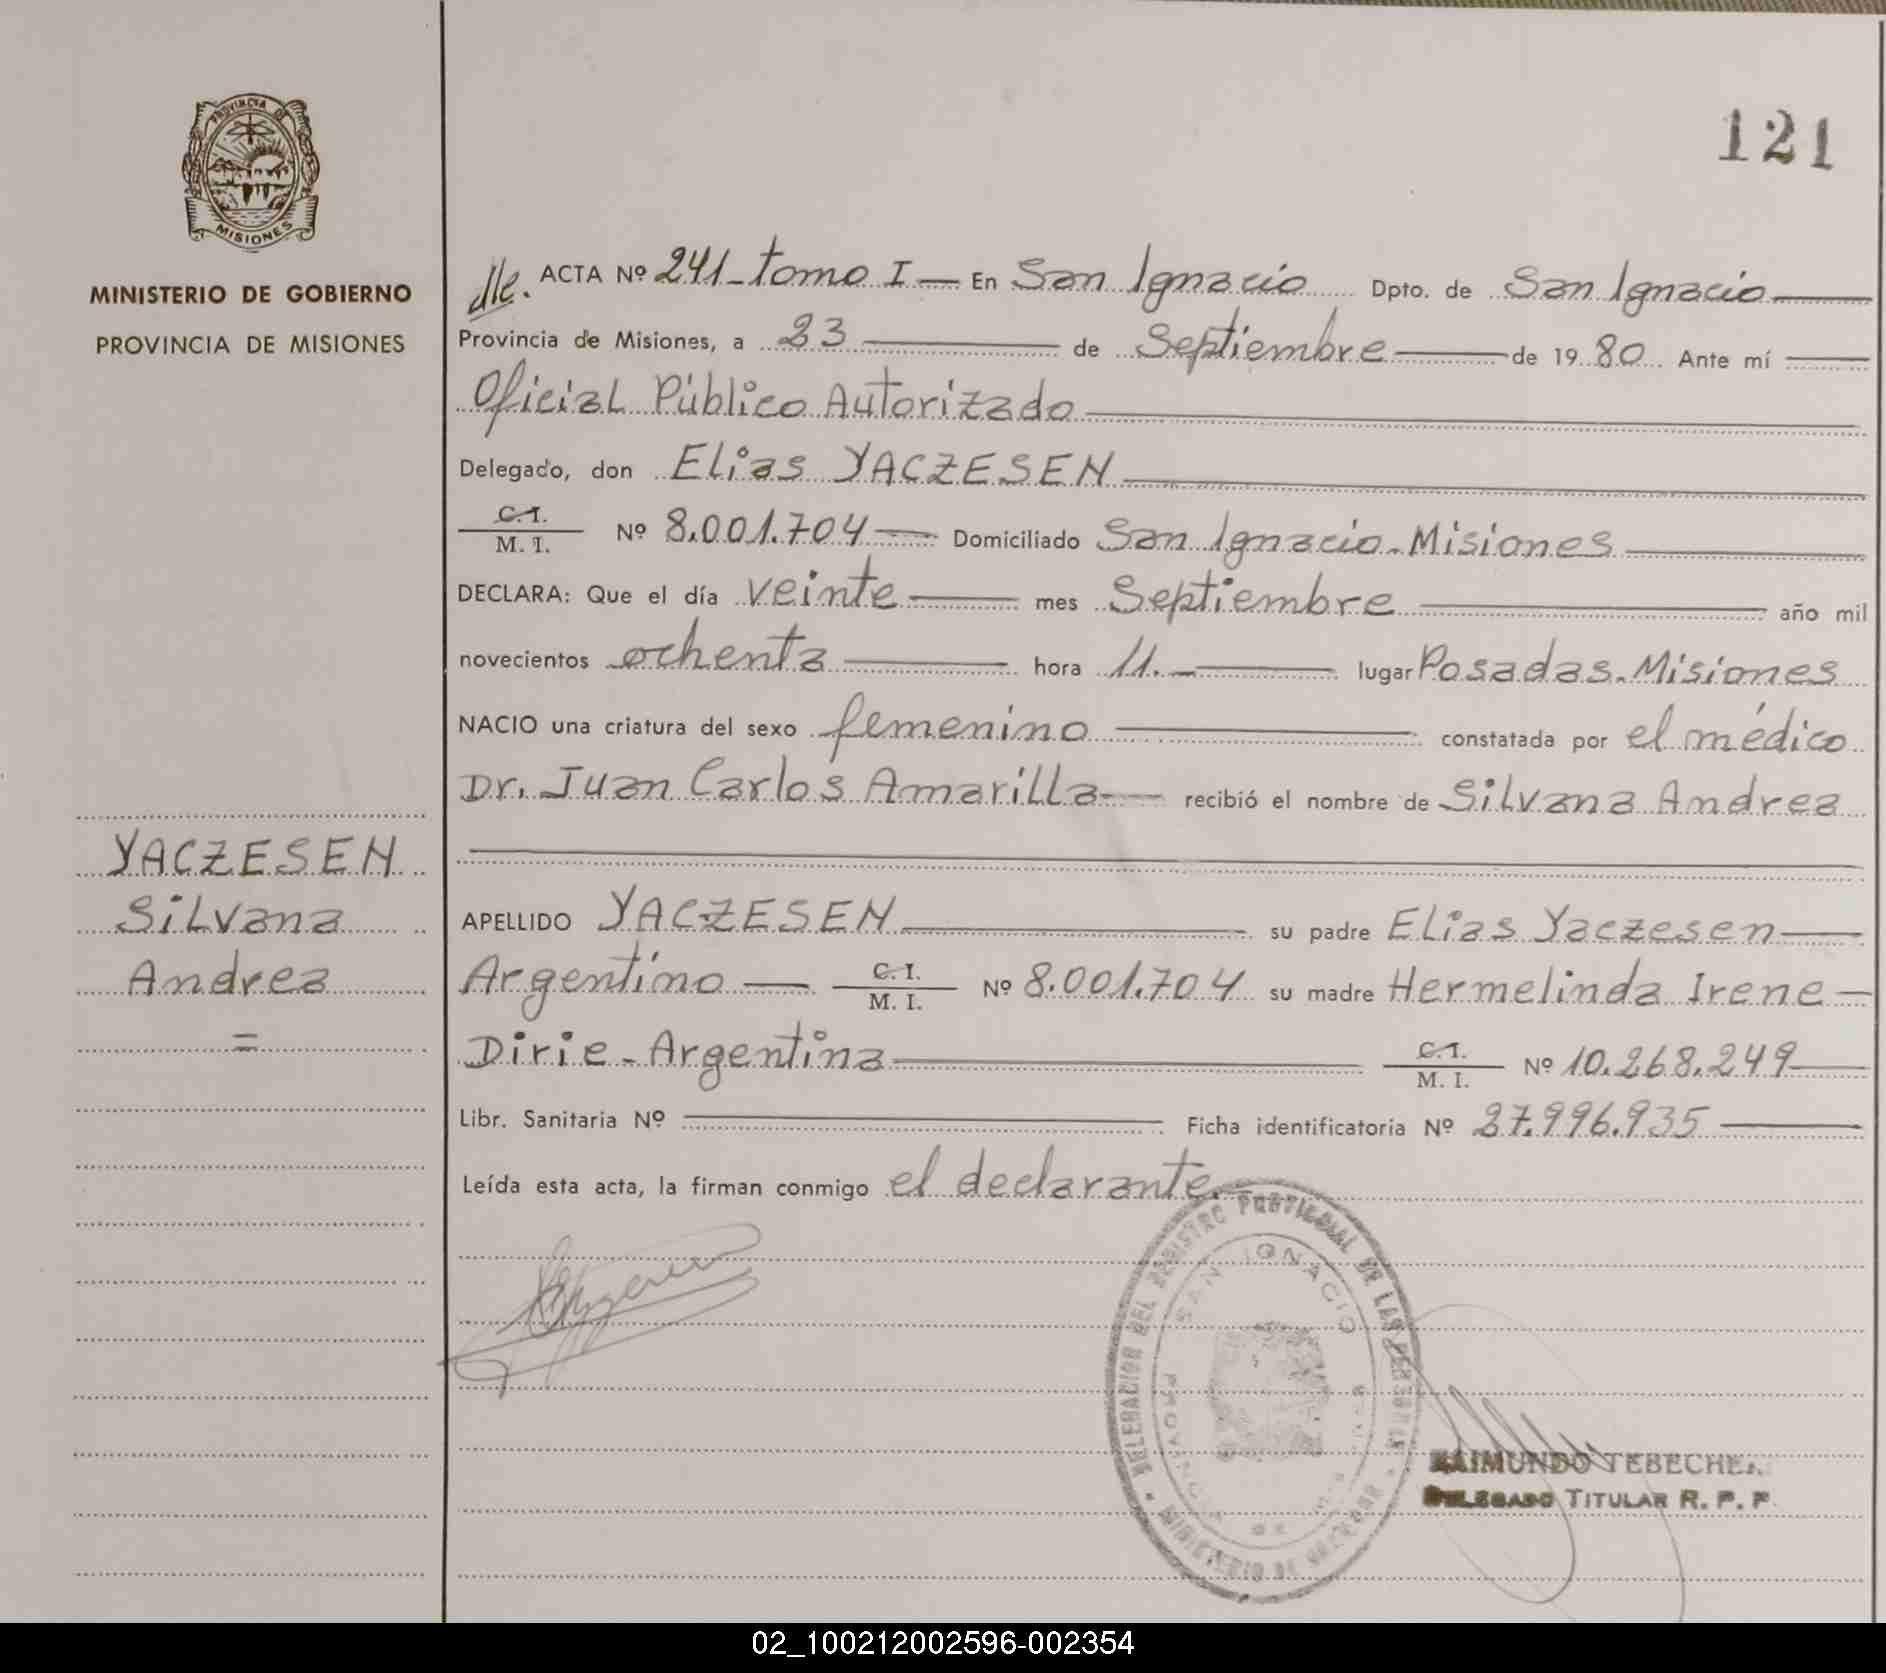 PROVINCIA DE
MISIONES
MINISTERIO DE GOBIERNO
PROVINCIA DE MISIONES
YACZESEN
Silvana
Andrea
=
121
ACTA Nº 241 - tomo I — En San Ignacio Dpto. de San Ignacio
Provincia de Misiones, a 23 de Septiembre de 1980 Ante mí
Oficial Público Autorizado
Delegado, don Elias YACZESEN
C.I. / M. I. Nº 8.001.704 Domiciliado San Ignacio - Misiones
DECLARA: Que el día veinte mes Septiembre año mil
novecientos ochenta hora 11. lugar Posadas - Misiones
NACIO una criatura del sexo femenino constatada por el médico
Dr. Juan Carlos Amarilla recibió el nombre de Silvana Andrea
APELLIDO YACZESEN su padre Elias Yaczesen
Argentino C.I. / M. I. Nº 8.001.704 su madre Hermelinda Irene
Dirie - Argentina C.I. / M. I. Nº 10.268.249
Libr. Sanitaria Nº Ficha identificatoria Nº 27.996.935
Leída esta acta, la firman conmigo el declarante.
DELEGACION DEL REGISTRO PROVINCIAL DE LAS PERSONAS
SAN IGNACIO
MINISTERIO DE GOBIERNO
RAIMUNDO TEBECHE
DELEGADO TITULAR R. P. P.
02_100212002596-002354